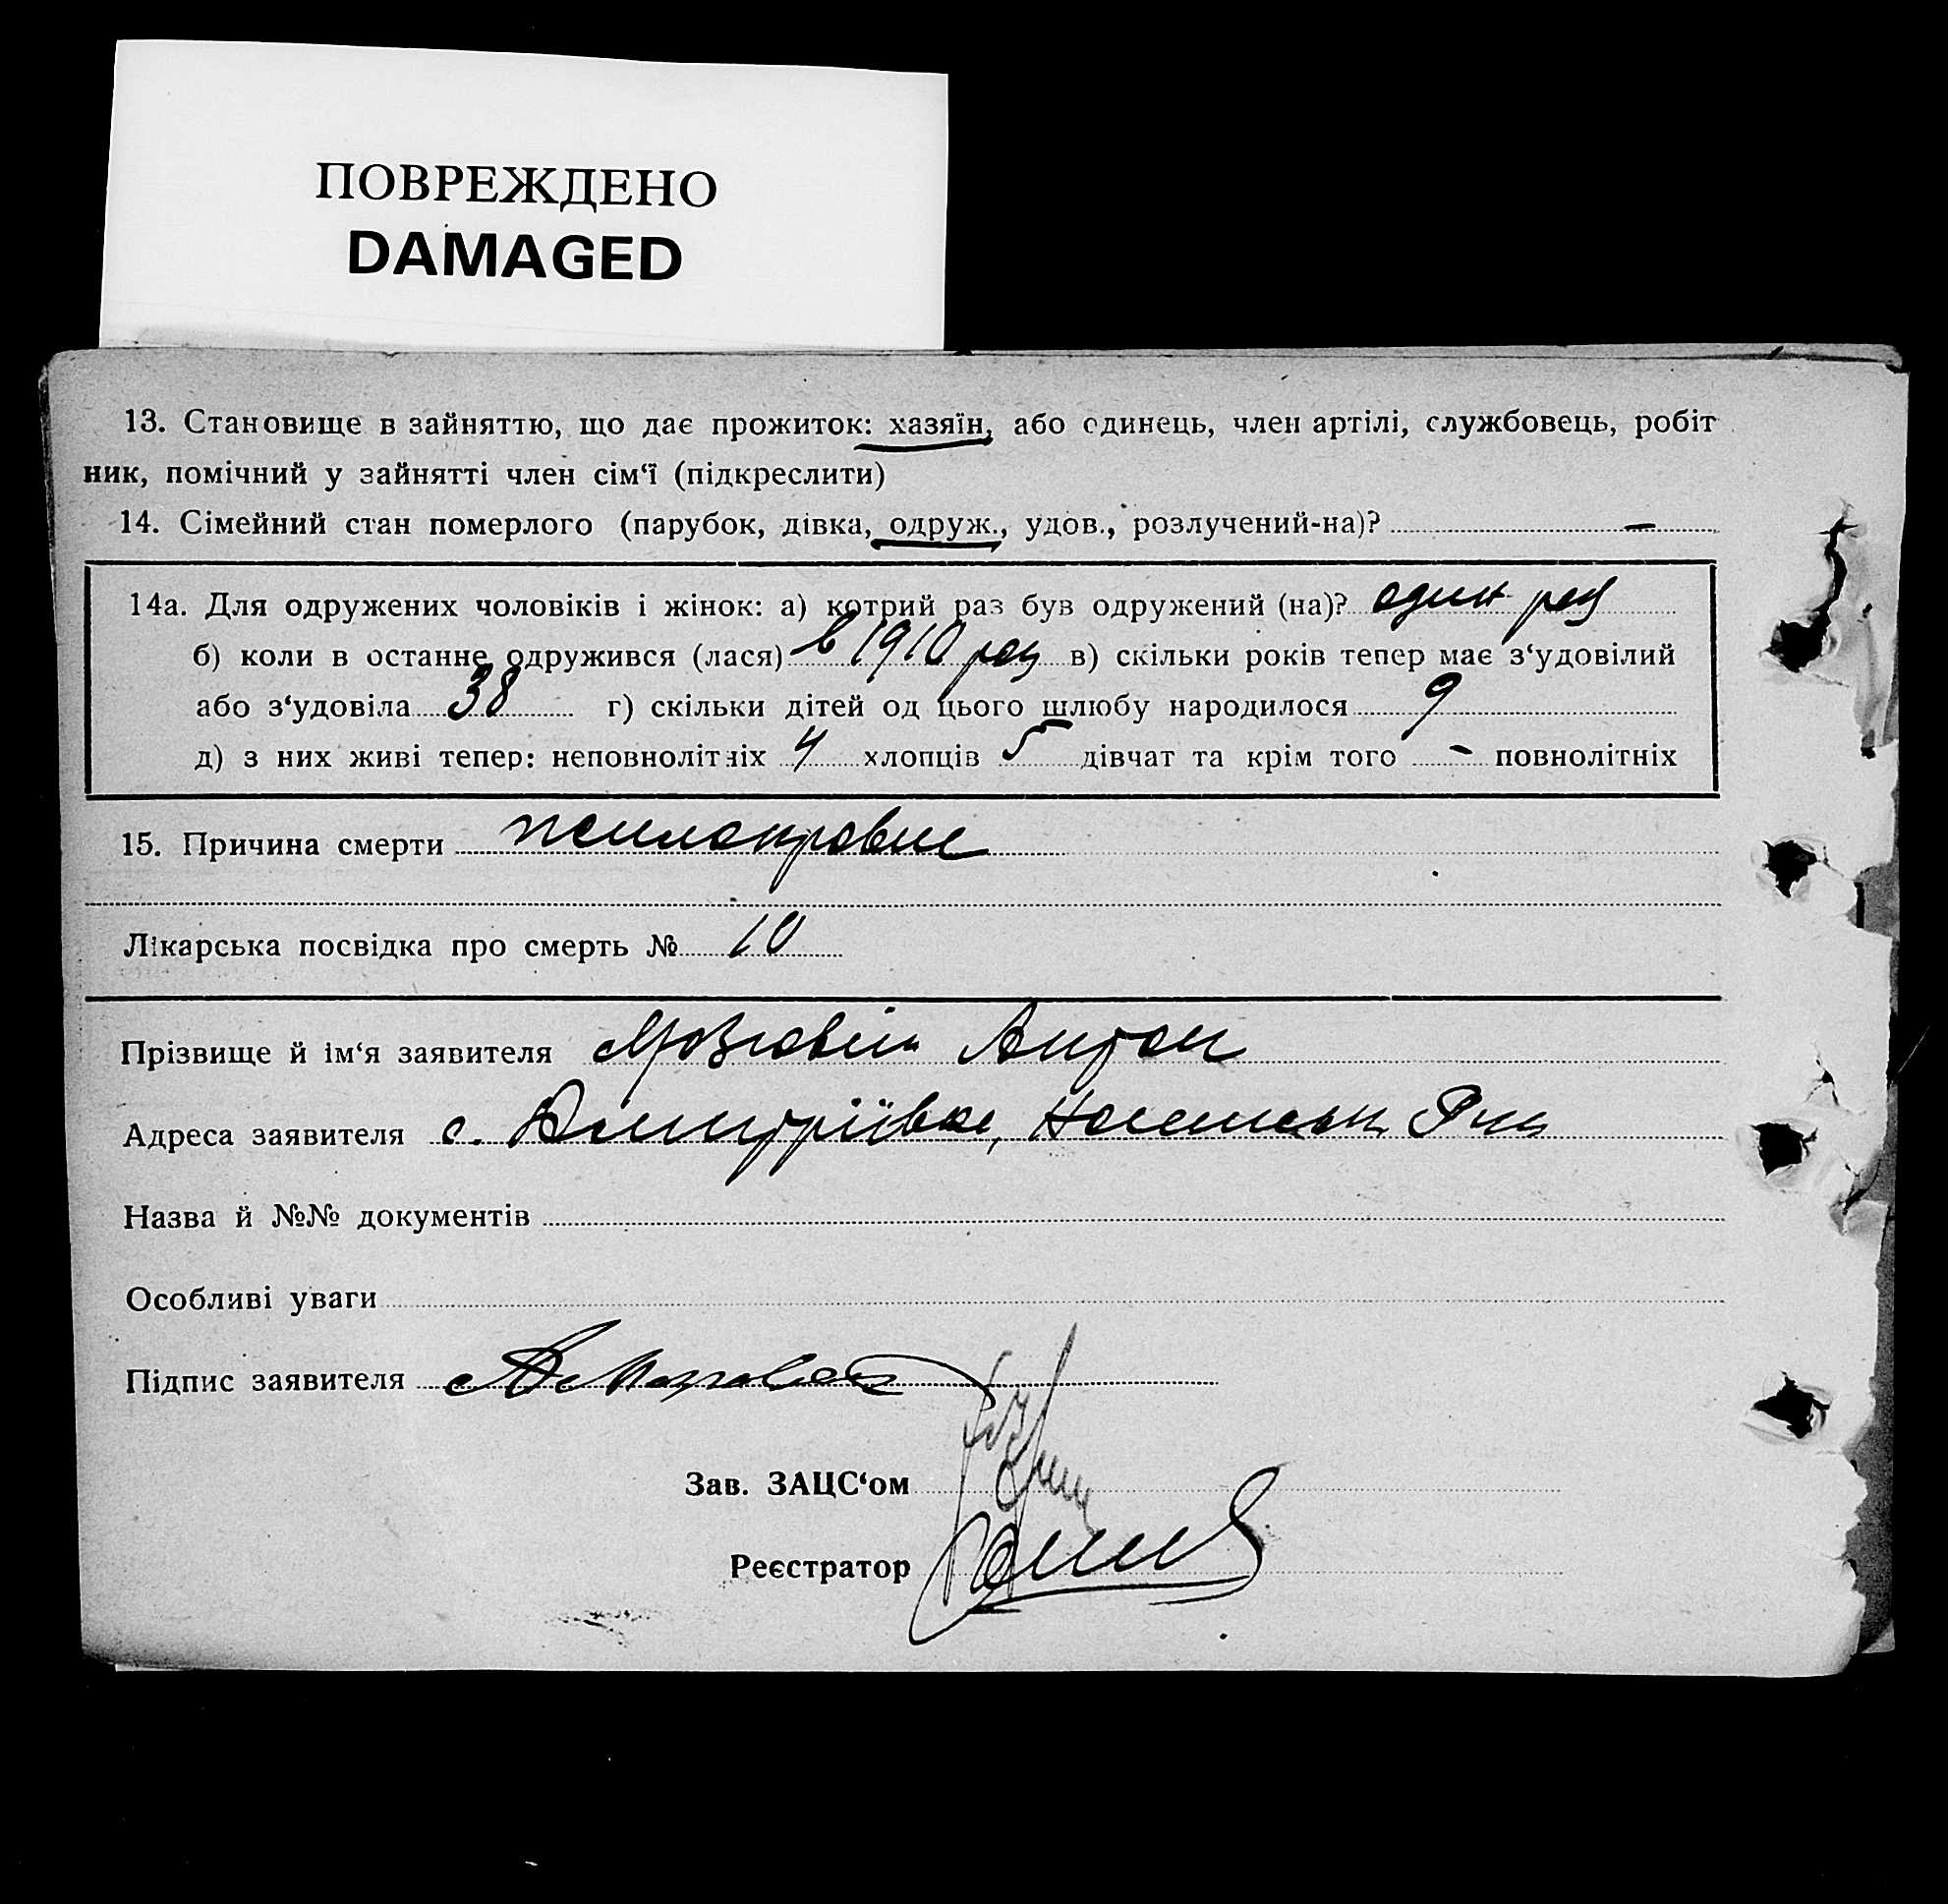 ПОВРЕЖДЕНО
DAMAGED
13. Становище в зайняттю, що дає прожиток: хазяїн, або одинець, член артілі, службовець, робіт
ник, помічний у зайнятті член сім‘ї (підкреслити)
14. Сімейний стан померлого (парубок, дівка, одруж., удов., розлучений-на)? —
14а. Для одружених чоловіків і жінок: а) котрий раз був одружений (на)? один раз
б) коли в останнє одружився (лася) в 1910 роц в) скільки років тепер має з‘удовілий
або з‘удовіла 38 г) скільки дітей од цього шлюбу народилося 9
д) з них живі тепер: неповнолітніх 4 хлопців 5 дівчат та крім того - повнолітніх
15. Причина смерти
Лікарська посвідка про смерть № 10
Прізвище й ім‘я заявителя Антон
Адреса заявителя с. Дмитріївка,
Назва й №№ документів
Особливі уваги
Підпис заявителя
Зав. ЗАЦС‘ом
Реєстратор